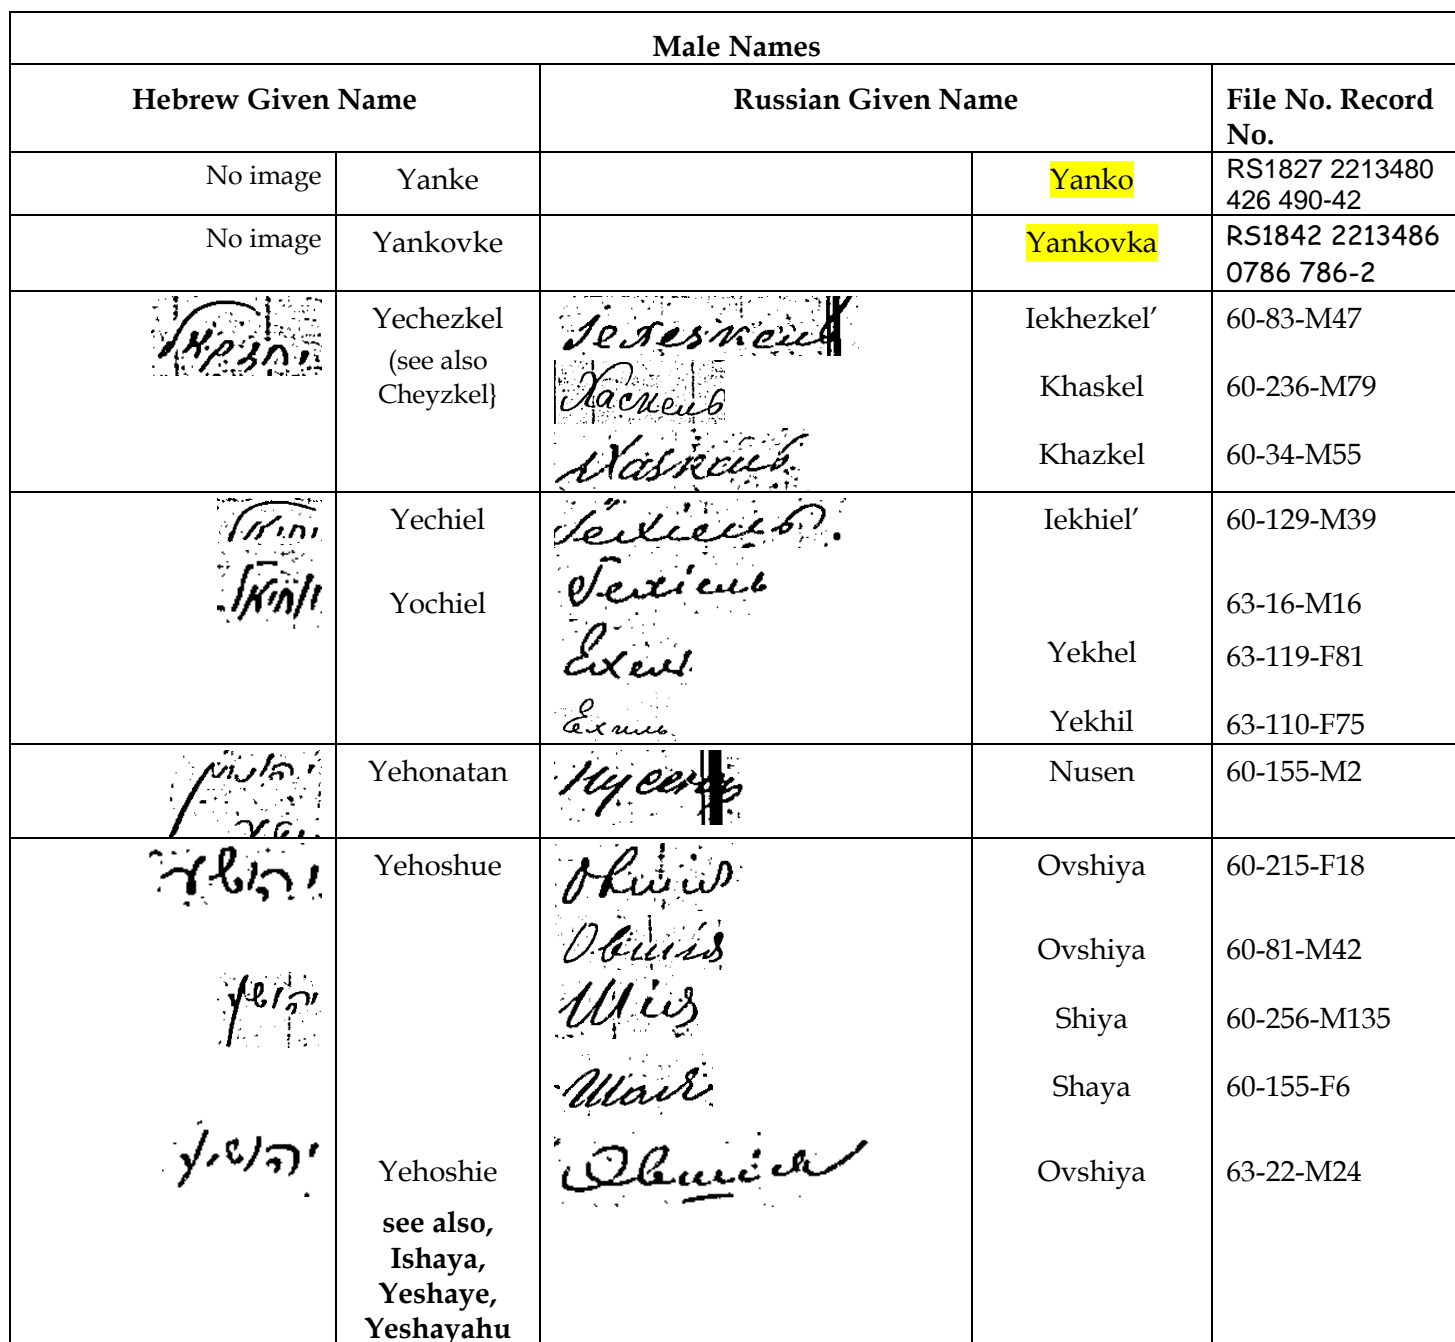 Male Names
Hebrew Given Name Russian Given Name File No. Record No.
No image Yanke Yanko RS1827 2213480 426 490-42
No image Yankovke Yankovka RS1842 2213486 0786 786-2
יחזקאל Yechezkel (see also Cheyzkel} Іехезкель Iekhezkel’ 60-83-M47
Хаскель Khaskel 60-236-M79
Хазкель Khazkel 60-34-M55
יחיאל Yechiel Іехіель Iekhiel’ 60-129-M39
יוחיאל Yochiel Іехіель 63-16-M16
Ехель Yekhel 63-119-F81
Ехиль Yekhil 63-110-F75
יהונתן Yehonatan Нусенъ Nusen 60-155-M2
יהושע Yehoshue Овшия Ovshiya 60-215-F18
Овшія Ovshiya 60-81-M42
יהושע Шія Shiya 60-256-M135
Шая Shaya 60-155-F6
יהושיע Yehoshie Овшія Ovshiya 63-22-M24
see also,
Ishaya,
Yeshaye,
Yeshayahu